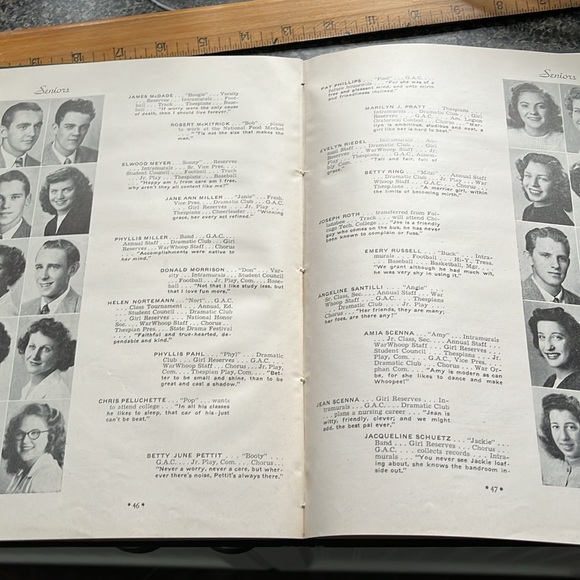 Seniors
JAMES McDADE . . . "Boogie" . . . Variety
. . . Reserves . . . Intramurals . . . Foot-
ball . . . Track . . . Thespians . . . Base-
ball . . . "If worry were the only cause
of death, then I should live forever."
ROBERT McKITRICK . . . "Bob" . . . plans
to work at the National Food Market
. . . "Tis not the size that makes the
man."
ELWOOD MEYER . . . Sonny" . . . Reserves
. . . Intramurals . . . Sr. Vice Pres. . . .
Student Council . . . Football . . . Track
. . . Jr. Play . . . Thespians . . . Baseball
. . . "Happy am I, from care am I free,
why aren't they all content like me?"
JANE ANN MILLER . . . "Janie" . . . Fresh.
Vice Pres. . . . Dramatic Club . . . G.A.C.
. . . Girl Reserves . . . Jr. Play . . .
Thespians . . . Cheerleader . . . "Winning
grace, her every act refined."
PHYLLIS MILLER . . . Band . . . G.A.C. . . .
Annual Staff . . . Dramatic Club . . . Girl
Reserves . . . WarWhoop Staff . . . Chorus
. . . "Accomplishments were native to
her mind."
DONALD MORRISON . . . "Don" . . . Var-
sity . . . Intramurals . . . Student Council
. . . Football . . . Jr. Play, Com. . . . Base-
ball . . . "Not that I like study less, but
that I love fun more."
HELEN NORTEMANN . . . "Nort" . . . G.A.C.
. . . Class Tournament . . . Annual, Ed.
. . . Student Council . . . Dramatic Club
. . . Girl Reserves . . . National Honor
Soc. . . . WarWhoop Staff . . . Chorus . . .
Thespian Pres. . . . State Drama Festival
. . . "Faithful and true-hearted, de-
pendable and kind."
PHYLLIS PAHL . . . "Phyl" . . . Dramatic
Club . . . Girl Reserves . . . G.A.C. . . .
WarWhoop Staff . . . Chorus . . . Jr. Play,
Com. . . . Thespian Play, Com. . . . "Bet-
ter to be small and shine, than to be
great and cast a shadow."
CHRIS PELUCHETTE . . . "Pop" . . . wants
to attend college . . . "In all his classes
he likes to sleep, that car of his just
can't be beat."
BETTY JUNE PETTIT . . . "Booty" . . .
G.A.C. . . . Jr. Play, Com. . . . Chorus . . .
"Never a worry, never a care, but wher-
ever there's noise, Pettit's always there."
• 46 •
Seniors
PAT PHILLIPS . . . G.A.C. . . .
. . . "For she was of a
and pleasant mind, and unto mirth
and friendliness inclined."
MARILYN J. PRATT . . . Thespians
. . . Intramurals . . . Girl Reserves . . .
G.A.C. . . . Dramatic Club . . .
Oratorical Contest . . . Am. Legion
is ambitious, studious and neat, a
girl like her is hard to beat."
EVELYN RIEDEL . . .
Annual Staff . . . Dramatic Club . . .
WarWhoop Staff . . . Girl Reserves . . .
. . . G.A.C. . . .
"Tall and fair, full of
grace."
BETTY RING . . . "Mitz" . . . Annual
Staff . . . Dramatic Club . . . G.A.C. . . .
WarWhoop Staff . . . Jr. Play . . . War
Orphan Com. . . . Girl Reserves . . . Chorus . . .
Thespians . . . "A merrier girl, within
the limits of becoming mirth."
JOSEPH ROTH . . . transferred from
. . . Track . . . will attend
Tech. College . . . "Joe is a friendly
guy who comes on the bus, he has never
been known to complain or fuss."
EMERY RUSSELL . . . "Buck" . . . Intra-
murals . . . Football . . . Hi-Y. . . . Tres.
. . . Baseball . . . Basketball Mgr. . . .
"We grant although he had much wit,
he was very shy in using it."
ANGELINE SANTILLI . . . "Angie" . . .
Sr. Class, Sec. . . . Annual Staff . . . War
Whoop Staff . . . G.A.C. . . . Thespians
. . . Girl Reserves . . . Dramatic Club . . .
Chorus . . . "Her friends, they are many;
her foes, are there any?"
AMIA SCENNA . . . "Amy" . . . Intramurals
. . . Jr. Class, Sec. . . . Annual Staff . . .
WarWhoop Staff . . . Girl Reserves . . .
Student Council . . . Thespians . . . Jr.
Play, Com. . . . G.A.C., Vice Pres. . . .
Dramatic Club . . . Chorus . . . War Or-
phan Com. . . . "Amy is modern as can
be, for she likes to dance and make
Whoopee!"
JEAN SCENNA . . . Girl Reserves . . . In-
tramurals . . . G.A.C. . . . Dramatic Club
. . . plans a nursing career . . . "Jean is
witty, friendly, clever; and we might
add, the best pal ever."
JACQUELINE SCHUETZ . . . "Jackie" . . .
Band . . . Girl Reserves . . . Chorus . . .
G.A.C. . . . collects records . . . Intra-
murals . . . "You never see Jackie loaf-
ing about, she knows the handroom in-
side out."
• 47 •